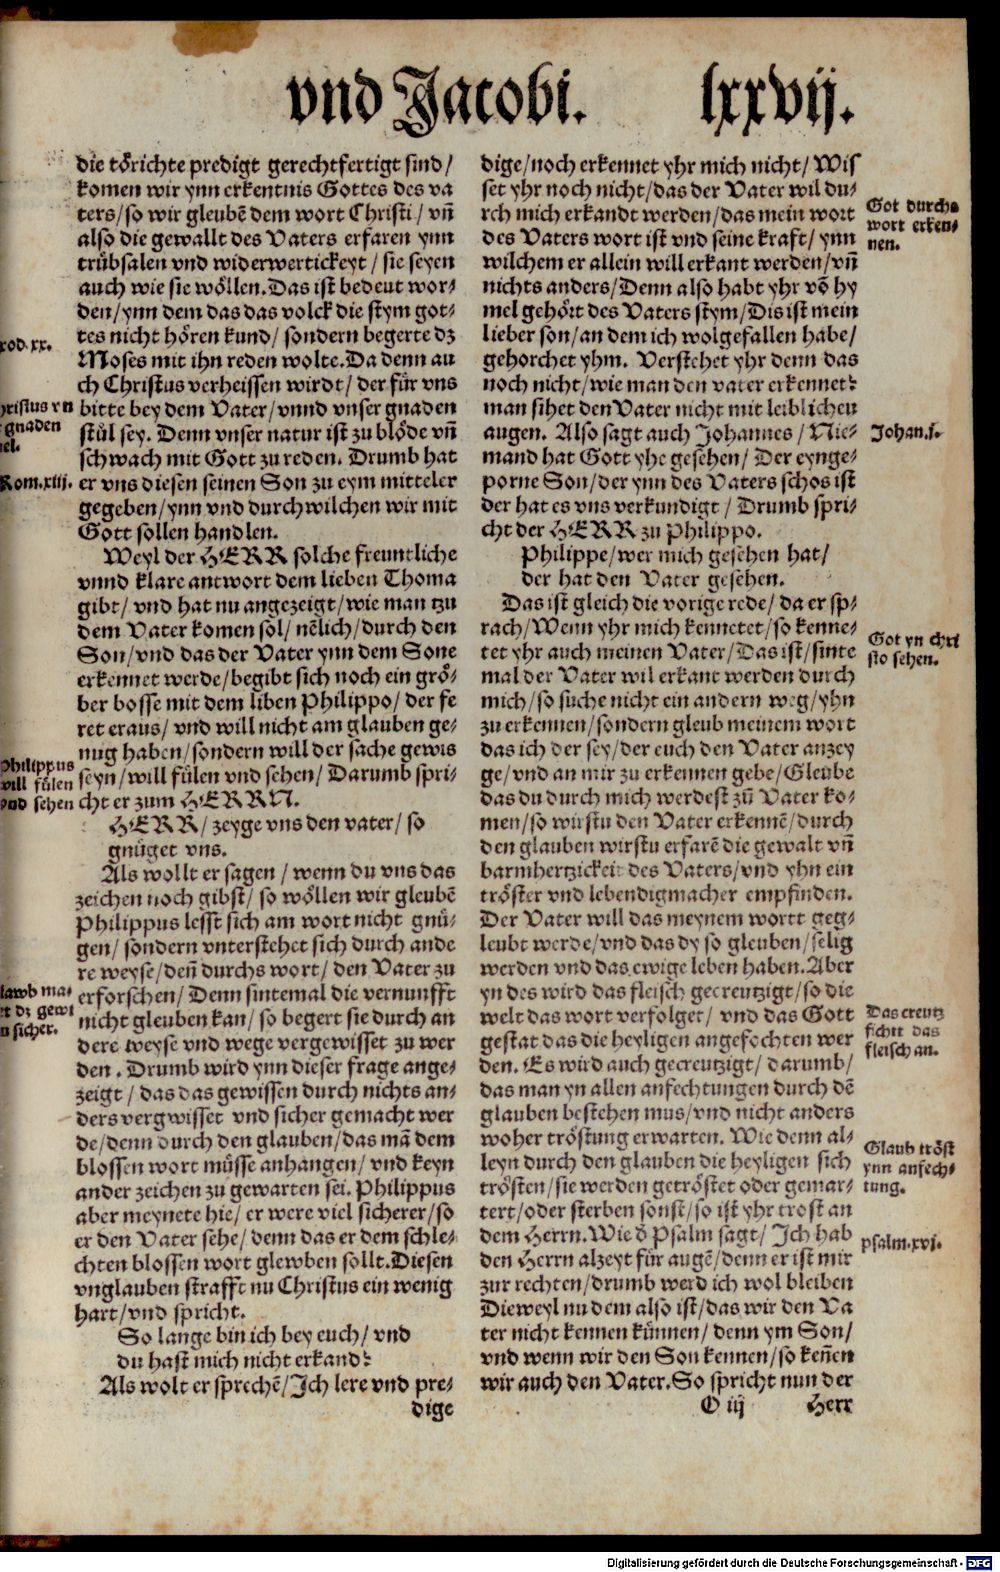 vnd Jacobi. lxxvij.
die törichte predigt gerechtfertigt sind/
komen wir ynn erkentnis Gottes des va
ters/so wir gleubẽ dem wort Christi/ vñ
also die gewallt des Vaters erfaren ynn
trübsalen vnd widerwertickeyt/ sie seyen
auch wie sie wöllen. Das ist bedeut wor-
den/ynn dem das das volck die stym got-
tes nicht hören kund/ sondern begerte dz
Moses mit ihn reden wolte. Da denn au
ch Christus verheissen wirdt/ der für vns
bitte bey dem Vater/ vnnd vnser gnaden
stůl sey. Denn vnser natur ist zu blöde vñ
schwach mit Gott zu reden. Drumb hat
er vns diesen seinen Son zu eym mitteler
gegeben/ynn vnd durch wilchen wir mit
Gott sollen handlen.
Weyl der HERR solche freuntliche
vnnd klare antwort dem lieben Thoma
gibt/ vnd hat nu angezeigt/wie man tzu
dem Vater komen sol/ nẽlich/durch den
Son/vnd das der Vater ynn dem Sone
erkennet werde/begibt sich noch ein grö-
ber bosse mit dem liben Philippo/ der fe
ret eraus/ vnd will nicht am glauben ge-
nug haben/sondern will der sache gewis
seyn/will fülen vnd sehen/ Darumb spri-
cht er zum HERRN.
HERR/zeyge vns den vater/ so
gnüget vns.
Als wollt er sagen/ wenn du vns das
zeichen noch gibst/ so wöllen wir gleubẽ
Philippus lesst sich am wort nicht gnü-
gen/ sondern vnterstehet sich durch ande
re weyse/deñ durchs wort/ den Vater zu
erforschen/ Denn sintemal die vernunfft
nicht gleuben kan/ so begert sie durch an
dere weyse vnd wege vergewisset zu wer
den. Drumb wird ynn dieser frage ange-
zeigt/ das das gewissen durch nichts an-
ders vergwisset vnd sicher gemacht wer
de/denn durch den glauben/das mã dem
blossen wort müsse anhangen/ vnd keyn
ander zeichen zu gewarten sei. Philippus
aber meynete hie/ er were viel sicherer/so
er den Vater sehe/ denn das er dem schle-
chten blossen wort glewben sollt. Diesen
vnglauben strafft nu Christus ein wenig
hart/vnd spricht.
So lange bin ich bey euch/ vnd
du hast mich nicht erkand?
Als wolt er sprechẽ/Ich lere vnd pre-
dige
xod. xx.
hristus vn
gnaden
el.
Rom.xiij.
Philippus
will fülen
vnd sehen
lawb ma-
t dz gewi
n sicher.
dige/noch erkennet yhr mich nicht/ Wis
set yhr noch nicht/das der Vater wil du-
rch mich erkandt werden/das mein wort
des Vaters wort ist vnd seine kraft/ ynn
wilchem er allein will erkant werden/vñ
nichts anders/Denn also habt yhr võ hy
mel gehört des Vaters stym/Dis ist mein
lieber son/an dem ich wolgefallen habe/
gehorchet yhm. Verstehet yhr denn das
noch nicht/wie man den vater erkennet?
man sihet den Vater nicht mit leiblichen
augen. Also sagt auch Johannes/ Nie-
mand hat Gott yhe gesehen/ Der eynge-
porne Son/der ynn des Vaters schos ist
der hat es vns verkundigt/ Drumb spri-
cht der HERR zu Philippo.
Philippe/wer mich gesehen hat/
der hat den Vater gesehen.
Das ist gleich die vorige rede/ da er sp-
rach/Wenn yhr mich kennetet/so kenne-
tet yhr auch meinen Vater/Das ist/sinte
mal der Vater wil erkant werden durch
mich/so suche nicht ein andern weg/yhn
zu erkennen/sondern gleub meinem wort
das ich der sey/der euch den Vater anzey
ge/vnd an mir zu erkennen gebe/Gleube
das du durch mich werdest zũ Vater ko-
men/so wirstu den Vater erkennẽ/durch
den glauben wirstu erfarẽ die gewalt vñ
barmhertzickeit des Vaters/vnd yhn ein
tröster vnd lebendigmacher empfinden.
Der Vater will das meynem wortt geg-
leubt werde/vnd das dy so gleuben/selig
werden vnd das ewige leben haben. Aber
yn des wird das fleisch gecreutzigt/so die
welt das wort verfolget/ vnd das Gott
gestat das die heyligen angefochten wer
den. Es wird auch gecreutzigt/darumb/
das man yn allen anfechtungen durch dẽ
glauben bestehen mus/vnd nicht anders
woher tröstung erwarten. Wie denn al-
leyn durch den glauben die heyligen sich
trösten/sie werden getröstet oder gemar-
tert/oder sterben sonst/so ist yhr trost an
dem Herrn. Wie d̄ Psalm sagt/ Ich hab
den Herrn alzeyt für augẽ/denn er ist mir
zur rechten/drumb werd ich wol bleiben
Dieweyl nu dem also ist/das wir den Va
ter nicht kennen künnen/ denn ym Son/
vnd wenn wir den Son kennen/so keñen
wir auch den Vater. So spricht nun der
O iij Herr
Got durchs
wort erken-
nen.
Johan.j.
Got yn chri
sto sehen.
Das creutz
ficht das
fleisch an.
Glaub tröst
ynn anfech-
tung.
psalm.xvj.
Digitalisierung gefördert durch die Deutsche Forschungsgemeinschaft - DFG